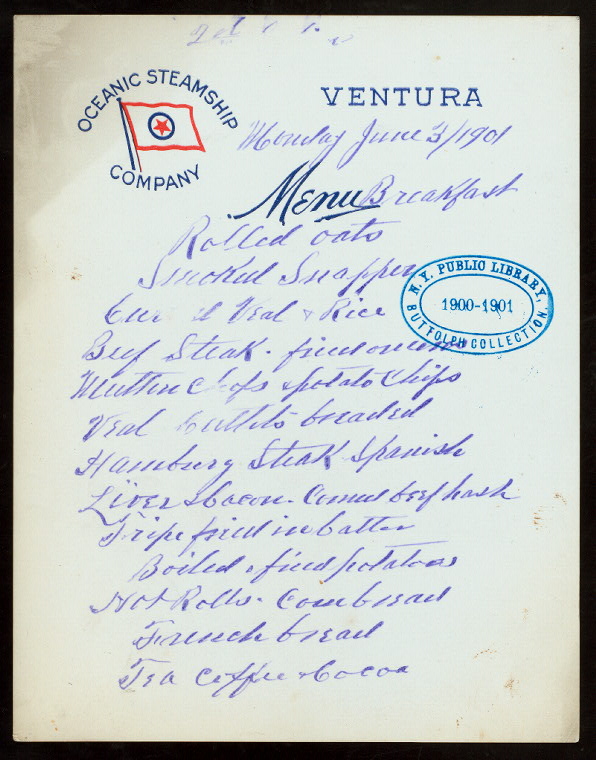 2d
OCEANIC STEAMSHIP
COMPANY
VENTURA
Monday June 3/1901
Menu Breakfast
Rolled oats
Smoked Snapper
N.Y. PUBLIC LIBRARY,
1900-1901
BUTTOLPH COLLECTION.
Veal & Rice
Beef Steak - fried onions
Mutton Chops & potato Chips
Veal Cutlets breaded
Hamburg Steak Spanish
Liver & bacon - Corned beef hash
Tripe fried in batter
Boiled & fried potatoes
Hot Rolls - Corn bread
French bread
Tea Coffee & Cocoa